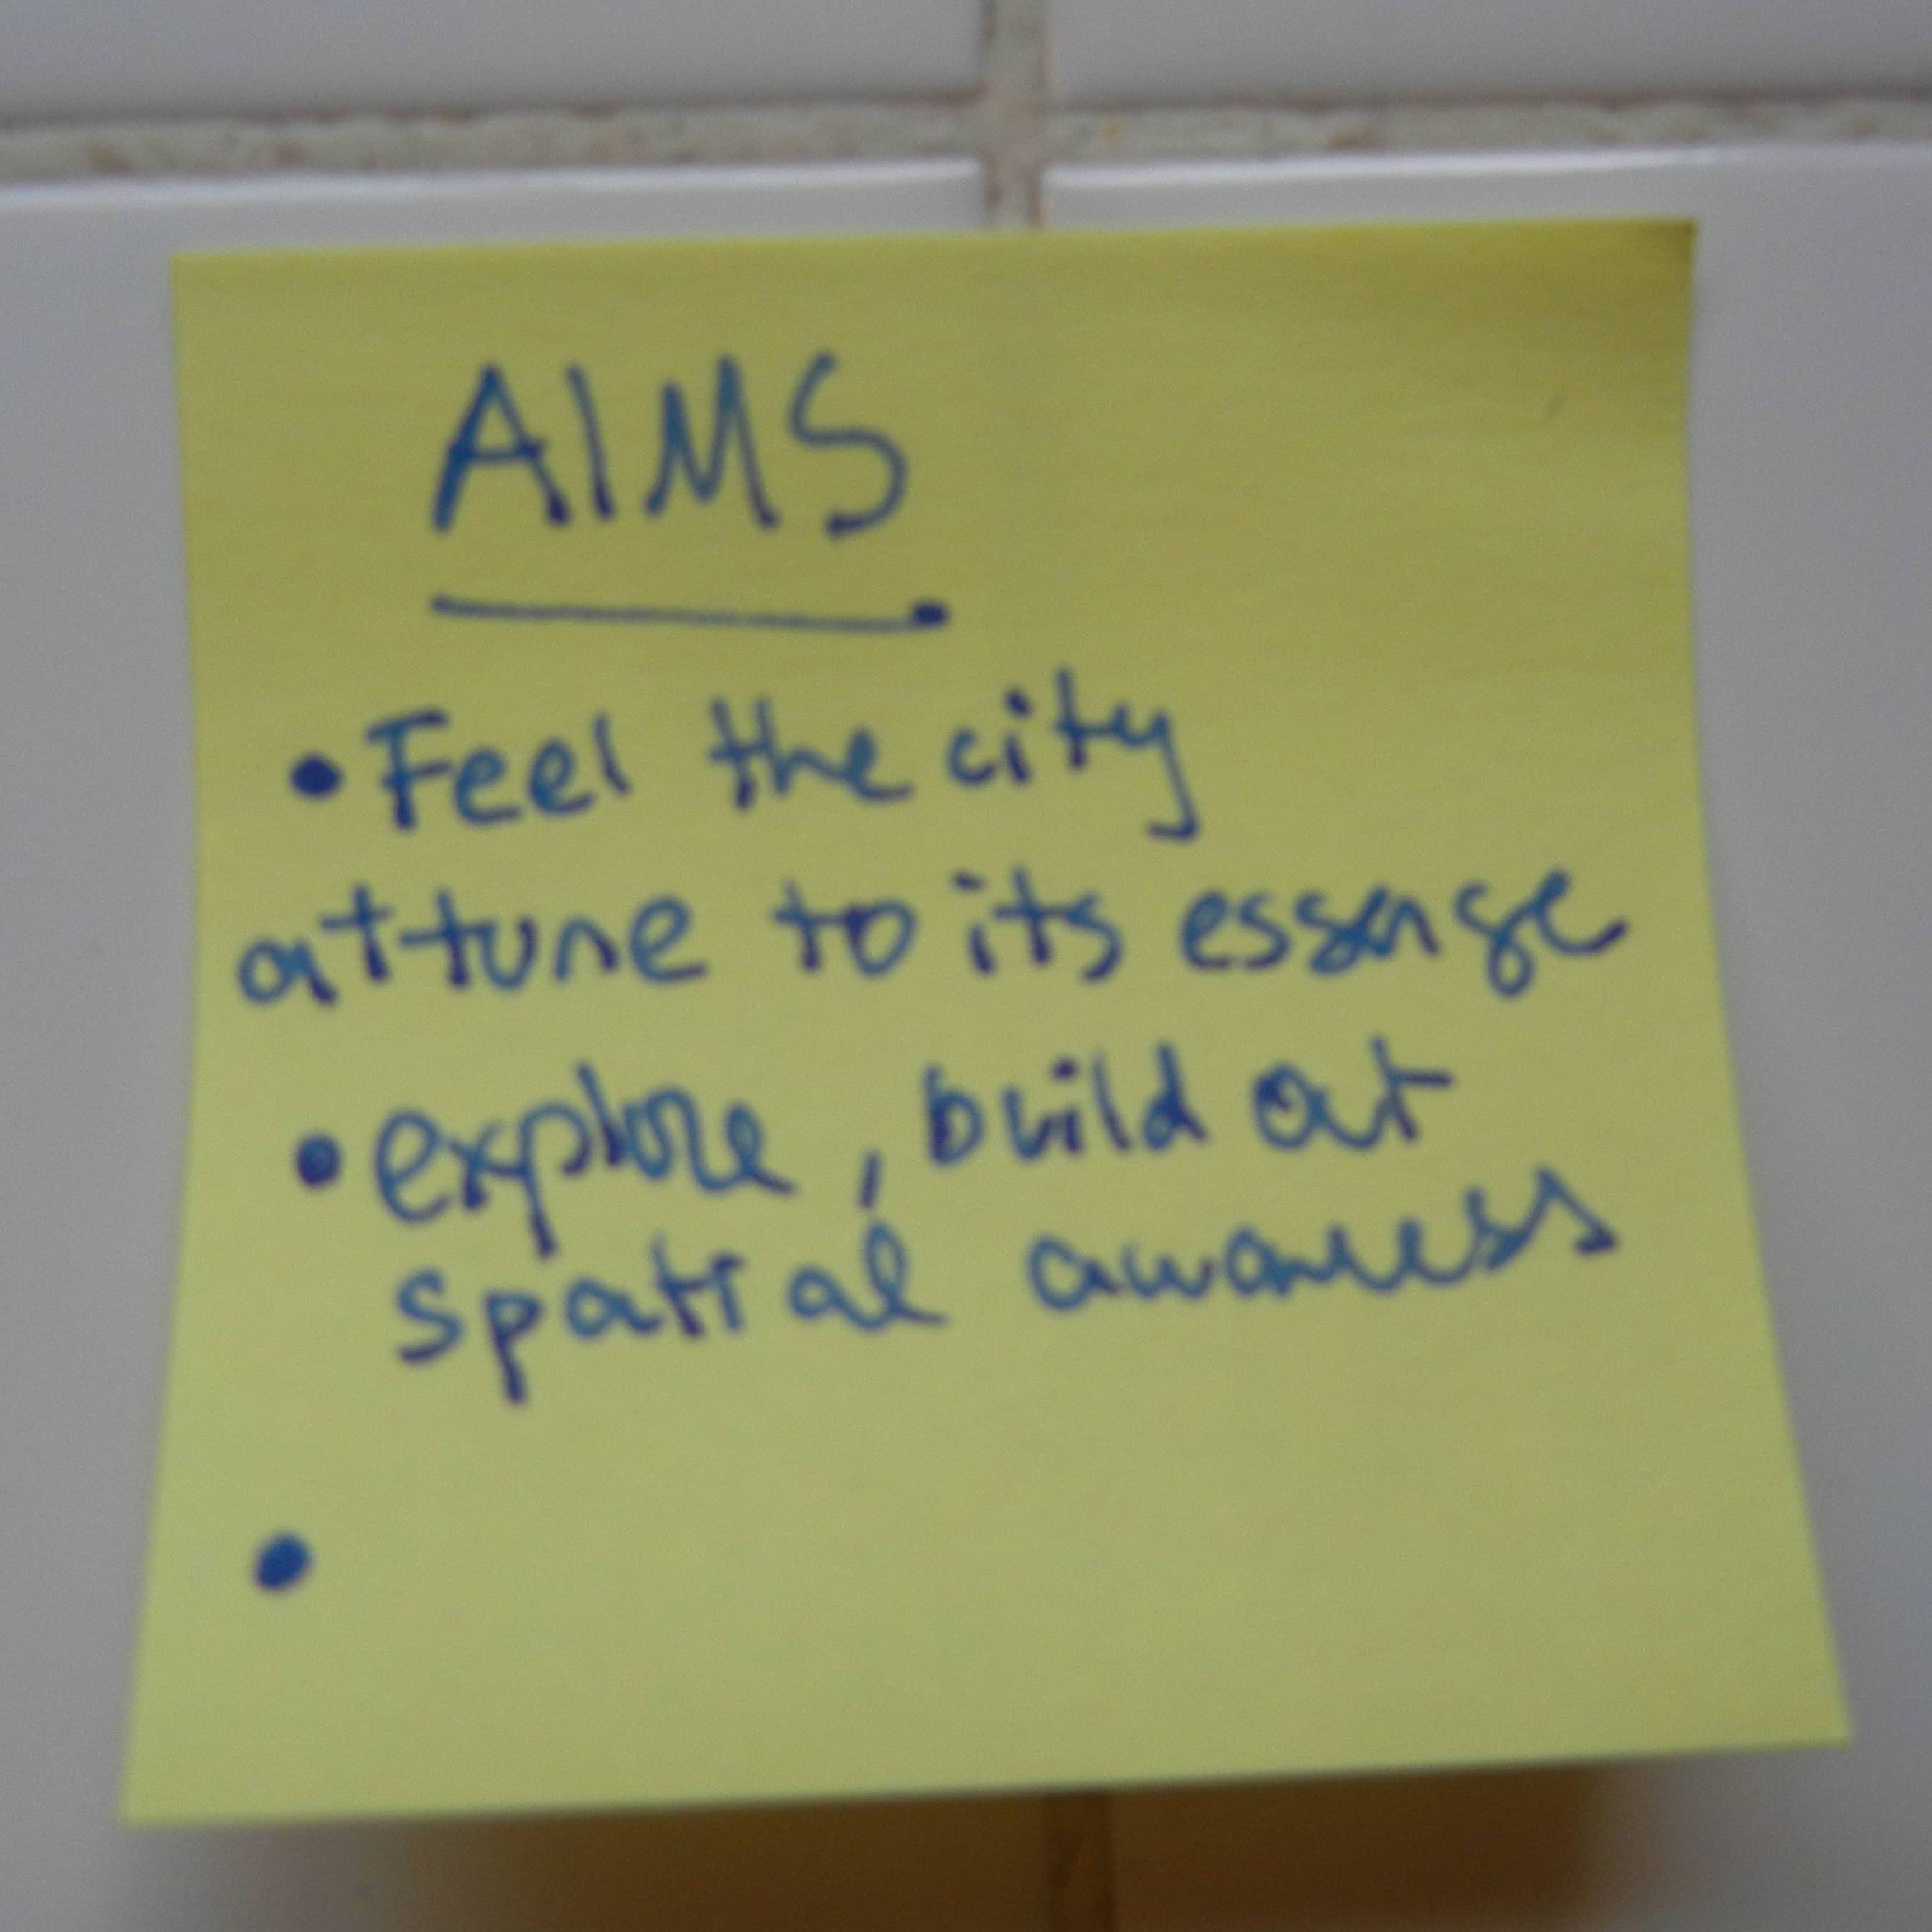 AIMS
• Feel the city
attune to its essense
• explore, build at
spatial awareness
•